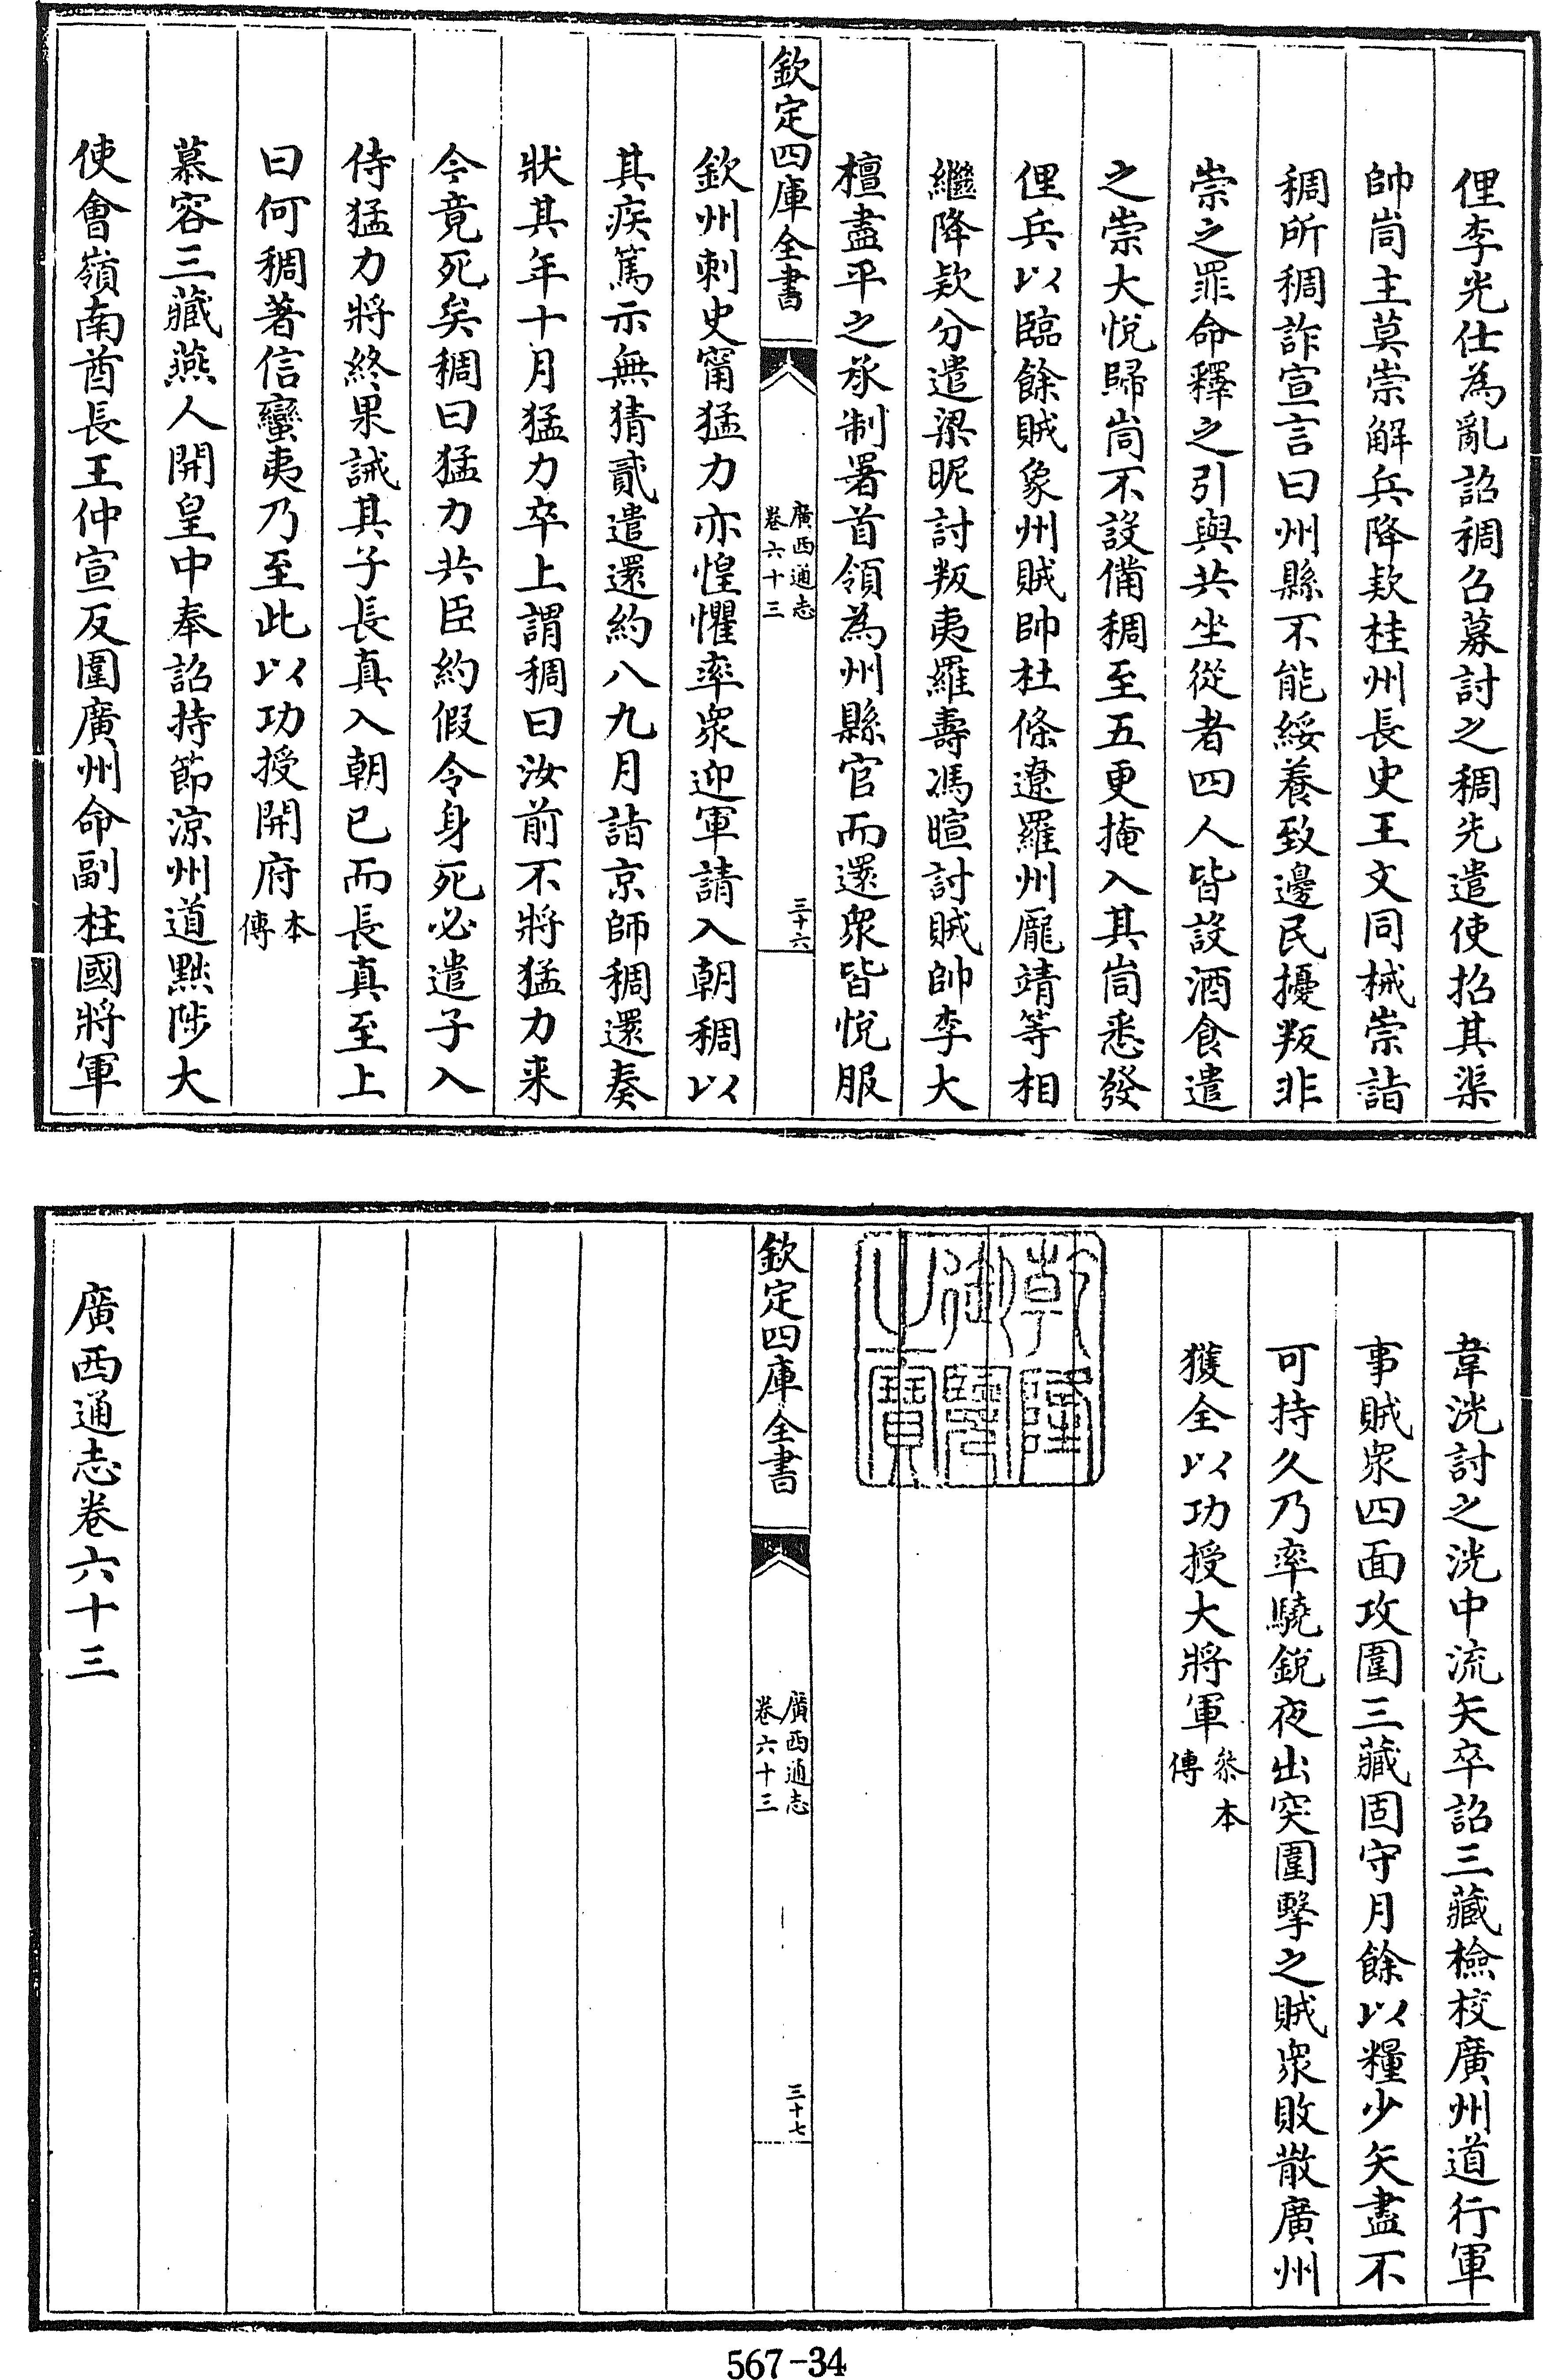 俚李光仕為亂詔稠召募討之稠先遣使招其渠
帥峝主莫崇解兵降欵桂州長史王文同械崇詣
稠所稠詐宣言曰州縣不能綏養致邊民擾叛非
崇之罪命釋之引與共坐從者四人皆設酒食遣
之崇大悅歸峝不設備稠至五更掩入其峝悉發
俚兵以臨餘賊象州賊帥杜條遼羅州龎靖等相
繼降欵分遣梁昵討叛夷羅壽馮暄討賊帥李大
檀盡平之承制署首領為州縣官而還衆皆悅服
欽定四庫全書
廣西通志
卷六十三
三十六
欽州刺史甯猛力亦惶懼率衆迎軍請入朝稠以
其疾篤示無猜貳遣還約八九月詣京師稠還奏
狀其年十月猛力卒上謂稠曰汝前不將猛力来
今竟死矣稠曰猛力共臣約假令身死必遣子入
侍猛力將終果誡其子長真入朝已而長真至上
曰何稠著信蠻夷乃至此以功授開府本
傳
慕容三藏燕人開皇中奉詔持節涼州道黜陟大
使會嶺南酋長王仲宣反圍廣州命副柱國將軍
韋洸討之洸中流矢卒詔三藏檢校廣州道行軍
事賊衆四面攻圍三藏固守月餘以糧少矢盡不
可持久乃率驍銳夜出突圍擊之賊衆敗散廣州
獲全以功授大將軍叅本
傳
乾隆
御覽
之寶
欽定四庫全書
廣西通志
卷六十三
三十七
廣西通志卷六十三
567-34